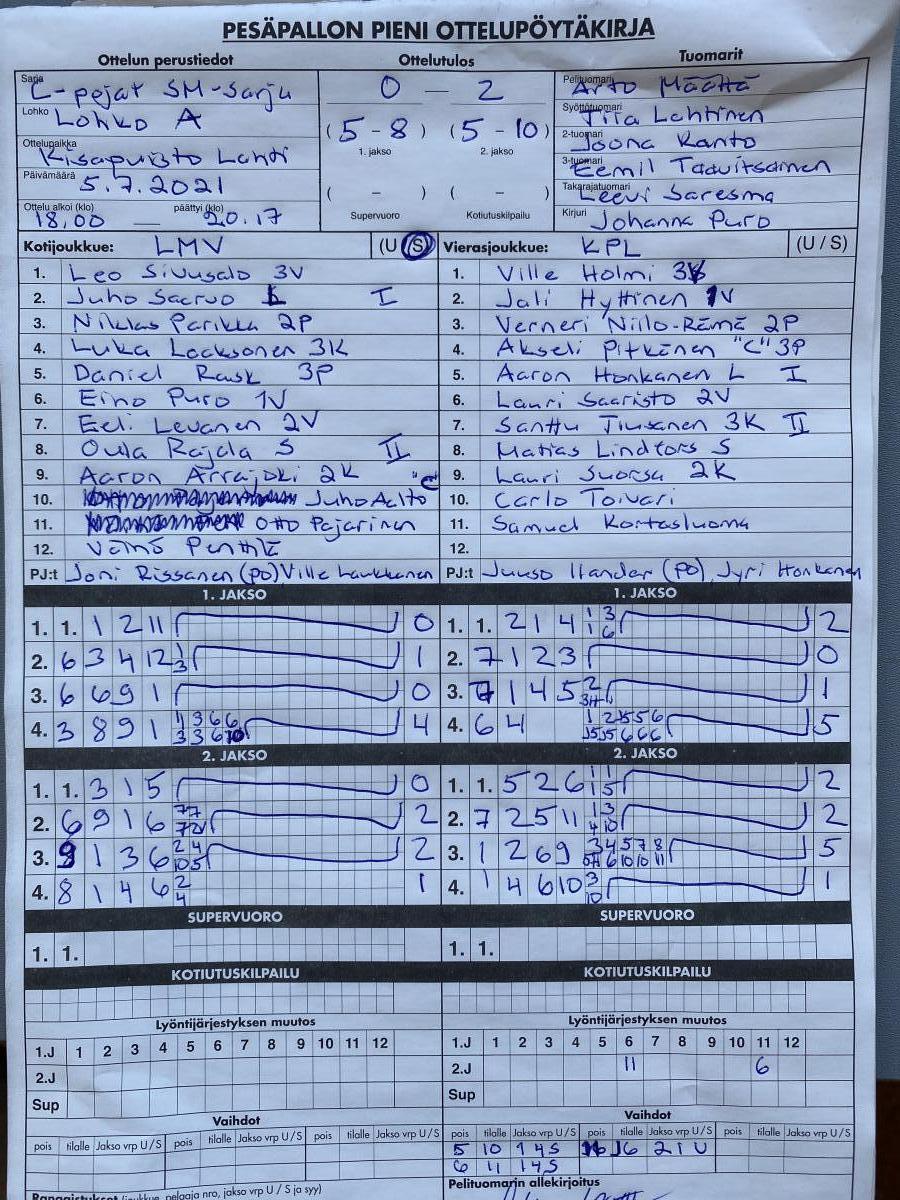 PESÄPALLON PIENI OTTELUPÖYTÄKIRJA
Ottelun perustiedot Ottelutulos Tuomarit
Sarja C-pojat SM-sarja 0 — 2 Pelituomari Arto Määttä
Lohko Lohko A (5 - 8) (5 - 10) Syöttötuomari Tiia Lahtinen
1. jakso 2. jakso 2-tuomari Joona Kanto
Ottelupaikka Kisapuisto Lahti 3-tuomari Eemil Taavitsainen
Päivämäärä 5.7.2021 ( - ) ( - ) Takarajatuomari Leevi Saresma
Ottelu alkoi (klo) 18,00 — päättyi (klo) 20.17 Supervuoro Kotiutuskilpailu Kirjuri Johanna Puro
Kotijoukkue: LMV (U S) Vierasjoukkue: KPL (U / S)
1. Leo Sivusalo 3V 1. Ville Holmi
2. Juho Saarvo I 2. Jali Hyttinen 1V
3. Niklas Parikka 2P 3. Verneri Niilo-Rämä 2P
4. Luka Laaksonen 3K 4. Akseli Pitkänen "C" 3P
5. Daniel Rask 3P 5. Aaron Honkanen L I
6. Eino Puro 1V 6. Lauri Saaristo 2V
7. Eeli Levanen 2V 7. Santtu Tiusanen 3K II
8. Oula Rajala S II 8. Matias Lindfors S
9. Aaron Arrajoki 2K "C" 9. Lauri Suorsa 2K
10. Juho Aalto 10. Carlo Toivari
11. Otto Pajarinen 11. Samuel Kortasluoma
12. Väinö Penttilä 12.
PJ:t Joni Rissanen (po) Ville Laukkanen PJ:t Juuso Ilander (po), Jyri Honkanen
1. JAKSO 1. JAKSO
1. 1. 1 2 11 0 1. 1. 2 1 4 1 3 6 2
2. 6 3 4 12 1 3 1 2. 7 1 2 3 0
3. 6 6 9 1 0 3. 1 4 5 2 1
4. 3 8 9 1 4 4. 6 4 5
2. JAKSO 2. JAKSO
1. 1. 3 1 5 0 1. 1. 5 2 6 1 1 5 2
2. 6 9 1 6 2 2. 7 2 5 11 1 3 4 10 2
3. 9 1 3 6 2 4 10 5 2 3. 1 2 6 9 3 4 5 7 8 5
4. 8 1 4 6 2 4 1 4. 1 4 6 10 3 10 1
SUPERVUORO SUPERVUORO
1. 1. 1. 1.
KOTIUTUSKILPAILU KOTIUTUSKILPAILU
Lyöntijärjestyksen muutos Lyöntijärjestyksen muutos
1.J 1 2 3 4 5 6 7 8 9 10 11 12 1.J 1 2 3 4 5 6 7 8 9 10 11 12
2.J 2.J 11 6
Sup Sup
Vaihdot Vaihdot
pois tilalle Jakso vrp U / S pois tilalle Jakso vrp U / S pois tilalle Jakso vrp U / S pois tilalle Jakso vrp U / S pois tilalle Jakso vrp U / S pois tilalle Jakso vrp U / S
5 10 1 4 S 6 2 1 U
6 11 1 4 S
Rangaistukset (joukkue, pelaaja nro, jakso vrp U / S ja syy) Pelituomarin allekirjoitus